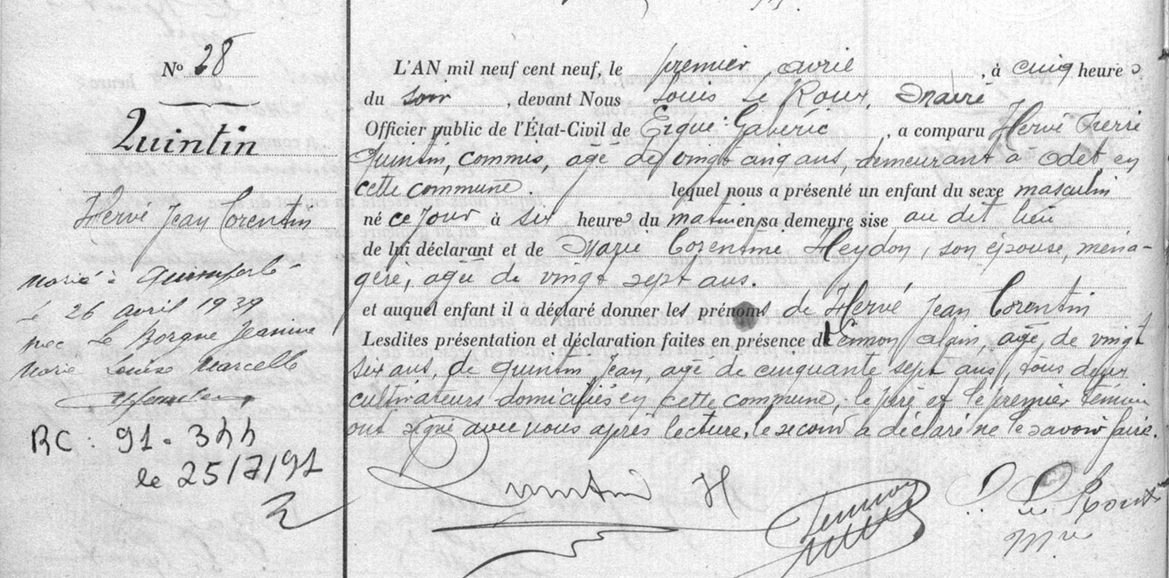 N° 28
Quintin
Hervé Jean Corentin
Marié à Quimperlé
le 26 avril 1939
avec Le Borgne Jeanne
Marie Louise Marcelle
RC : 91 - 344
le 25/7/91
L'AN mil neuf cent neuf, le premier avril, à cinq heures
du soir, devant Nous Louis Le Roux, Maire
Officier public de l'État-Civil de Ergué-Gabéric, a comparu Hervé Pierre
Quintin, commis, âgé de vingt cinq ans, demeurant à Odet en
cette commune. lequel nous a présenté un enfant du sexe masculin
né ce jour à six heures du matin en sa demeure sise au dit lieu
de lui déclarant et de Marie Corentine Heydon, son épouse, ména-
gère, âgée de vingt sept ans.
et auquel enfant il a déclaré donner les prénoms de Hervé Jean Corentin
Lesdites présentation et déclaration faites en présence de Alain, âgé, de vingt
six ans, de Quintin, Jean, âgé de cinquante sept ans, tous deux
cultivateurs domiciliés en cette commune, le père et le premier témoin
ont signé avec nous après lecture, le second a déclaré ne le savoir faire.
Quintin H
L. Le Roux